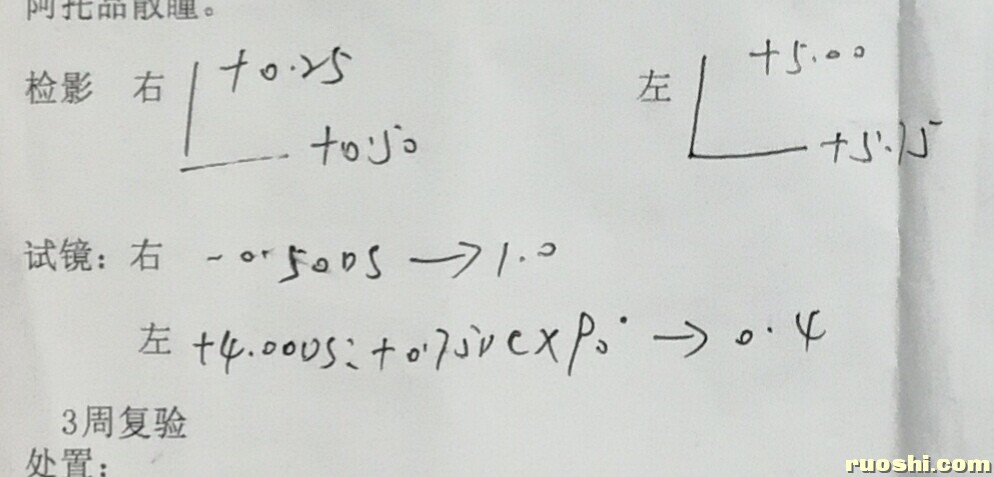 阿托品散瞳。
检影 右 +0.25 左 +5.00
+0.50 +5.75
试镜：右 -0.50DS → 1.0
左 +4.00DS:+0.75DC×90° → 0.4
3周复验
处置：
ruoshi.com